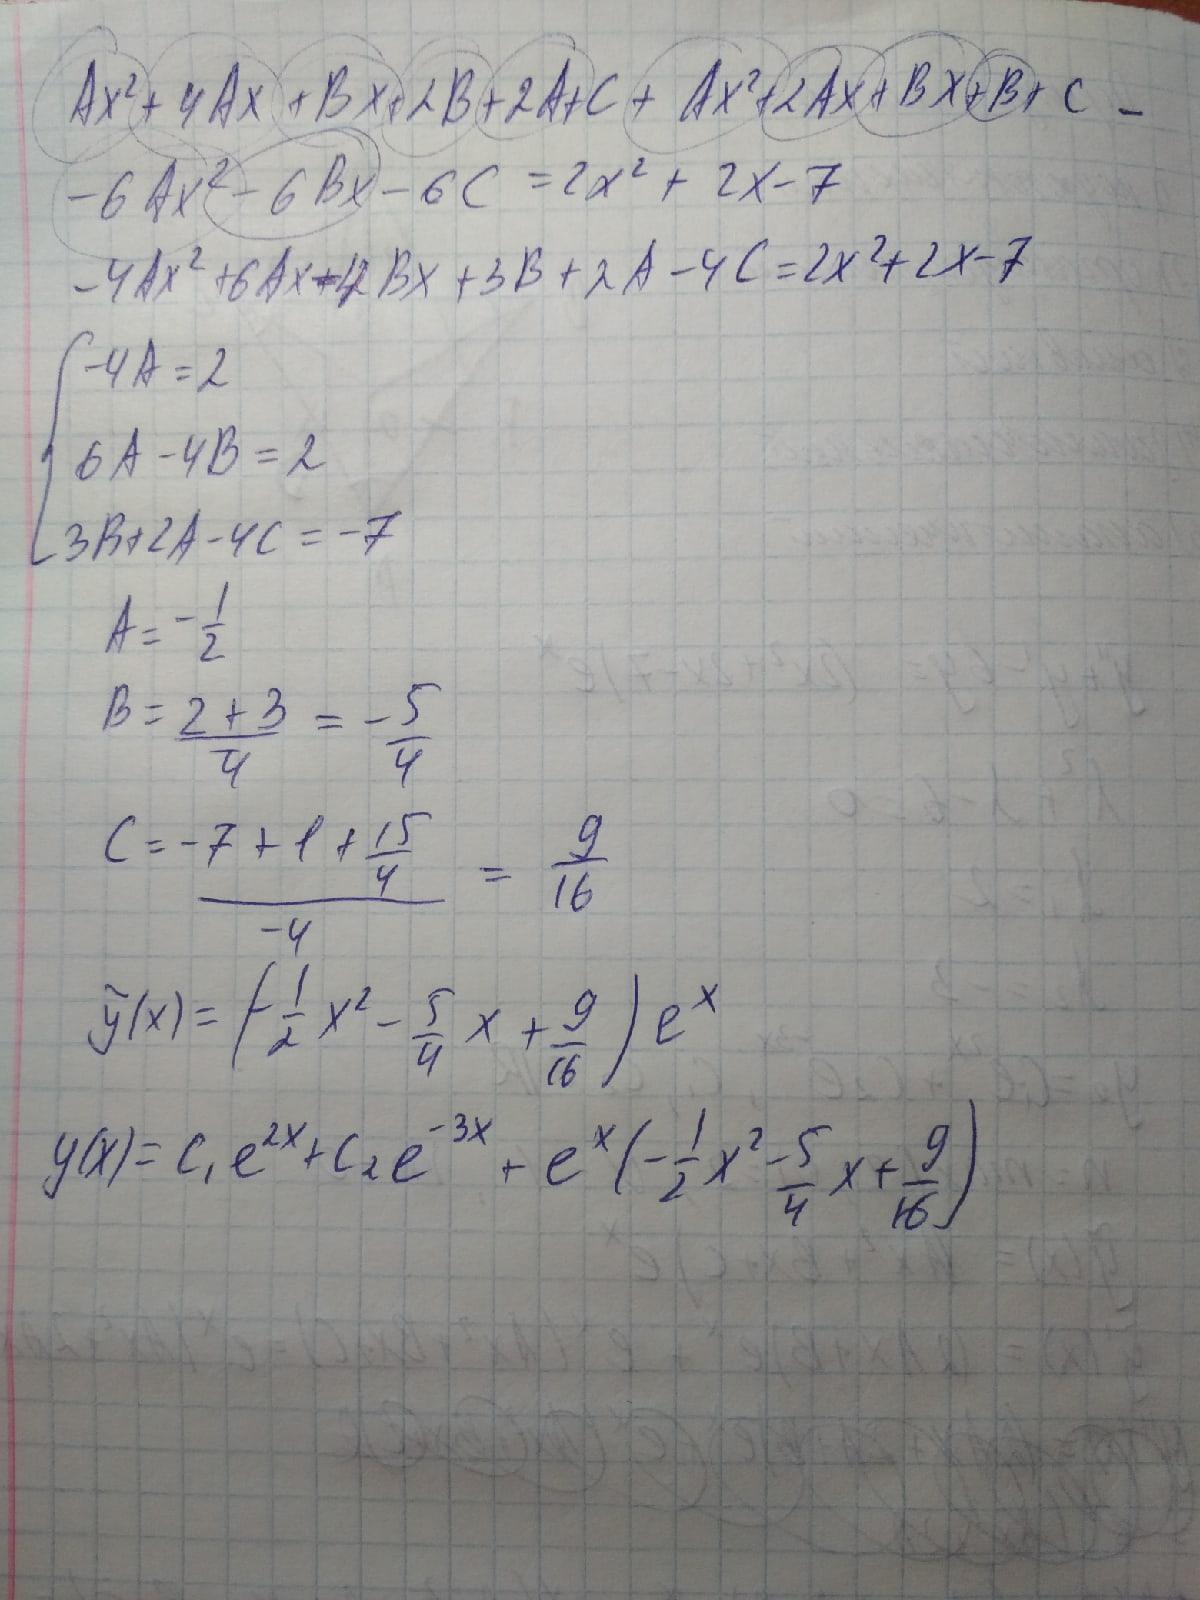 Ax² + 4Ax + Bx + 2B + 2A + C + Ax² + 2Ax + Bx + B + C -
- 6Ax² - 6Bx - 6C = 2x² + 2x - 7
-4Ax² + 6Ax - 4Bx + 3B + 2A - 4C = 2x² + 2x - 7
{ -4A = 2
6A - 4B = 2
3B + 2A - 4C = -7
A = -1/2
B = (2 + 3)/4 = -5/4
C = (-7 + 1 + 15/4)/(-4) = 9/16
ỹ(x) = (-1/2 x² - 5/4 x + 9/16) e^x
y(x) = C₁e^(2x) + C₂e^(-3x) + e^x (-1/2 x² - 5/4 x + 9/16)